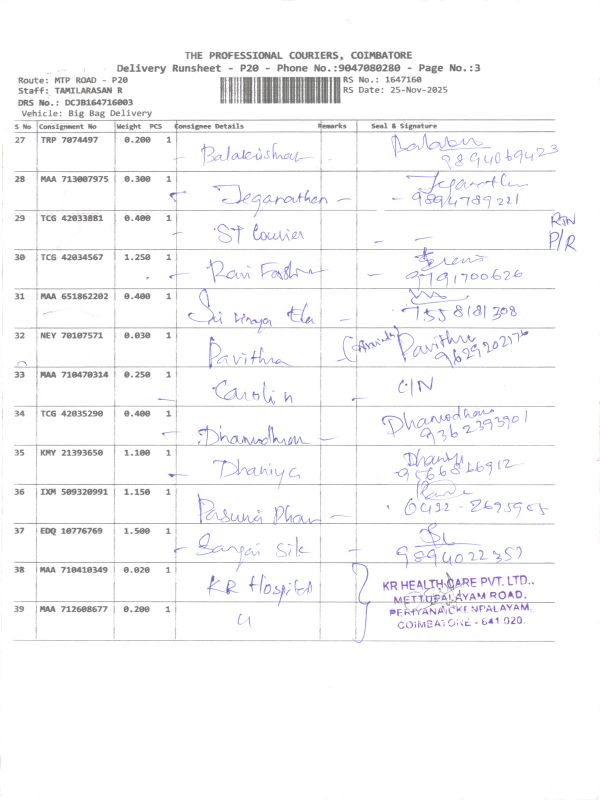 THE PROFESSIONAL COURIERS, COIMBATORE
Delivery Runsheet - P20 - Phone No.:9047080280 - Page No.:3
Route: MTP ROAD - P20 RS No.: 1647160
Staff: TAMILARASAN R RS Date: 25-Nov-2025
DRS No.: DCJB164716003
Vehicle: Big Bag Delivery
S No Consignment No Weight PCS Consignee Details Remarks Seal & Signature
27 TRP 7074497 0.200 1 Balakrishnan
9894069423
28 MAA 713007975 0.300 1 Jeganathan -
- 9894789221
29 TCG 42033881 0.400 1 ST Courier - - RTN
P/R
30 TCG 42034567 1.250 1 Ravi Fashion -
9791700626
31 MAA 651862202 0.400 1 Sri Vinaya -
7558181308
32 NEY 70107571 0.030 1 Pavithra - Pavithra
33 MAA 710470314 0.250 1 Carolin - C/N
34 TCG 42035290 0.400 1 Dhamodharan - Dhamodharan
9362393901
35 KMY 21393650 1.100 1 Dhaniya - Dhaniya
9566866912
36 IXM 509320991 1.150 1 -
0422 - 2695905
37 EDQ 10776769 1.500 1 Silk -
9894022357
38 MAA 710410349 0.020 1 KR Hospital
39 MAA 712608677 0.200 1 "
KR HEALTH CARE PVT. LTD.,
METTUPALAYAM ROAD,
PERIYANAICKENPALAYAM,
COIMBATORE - 641 020.